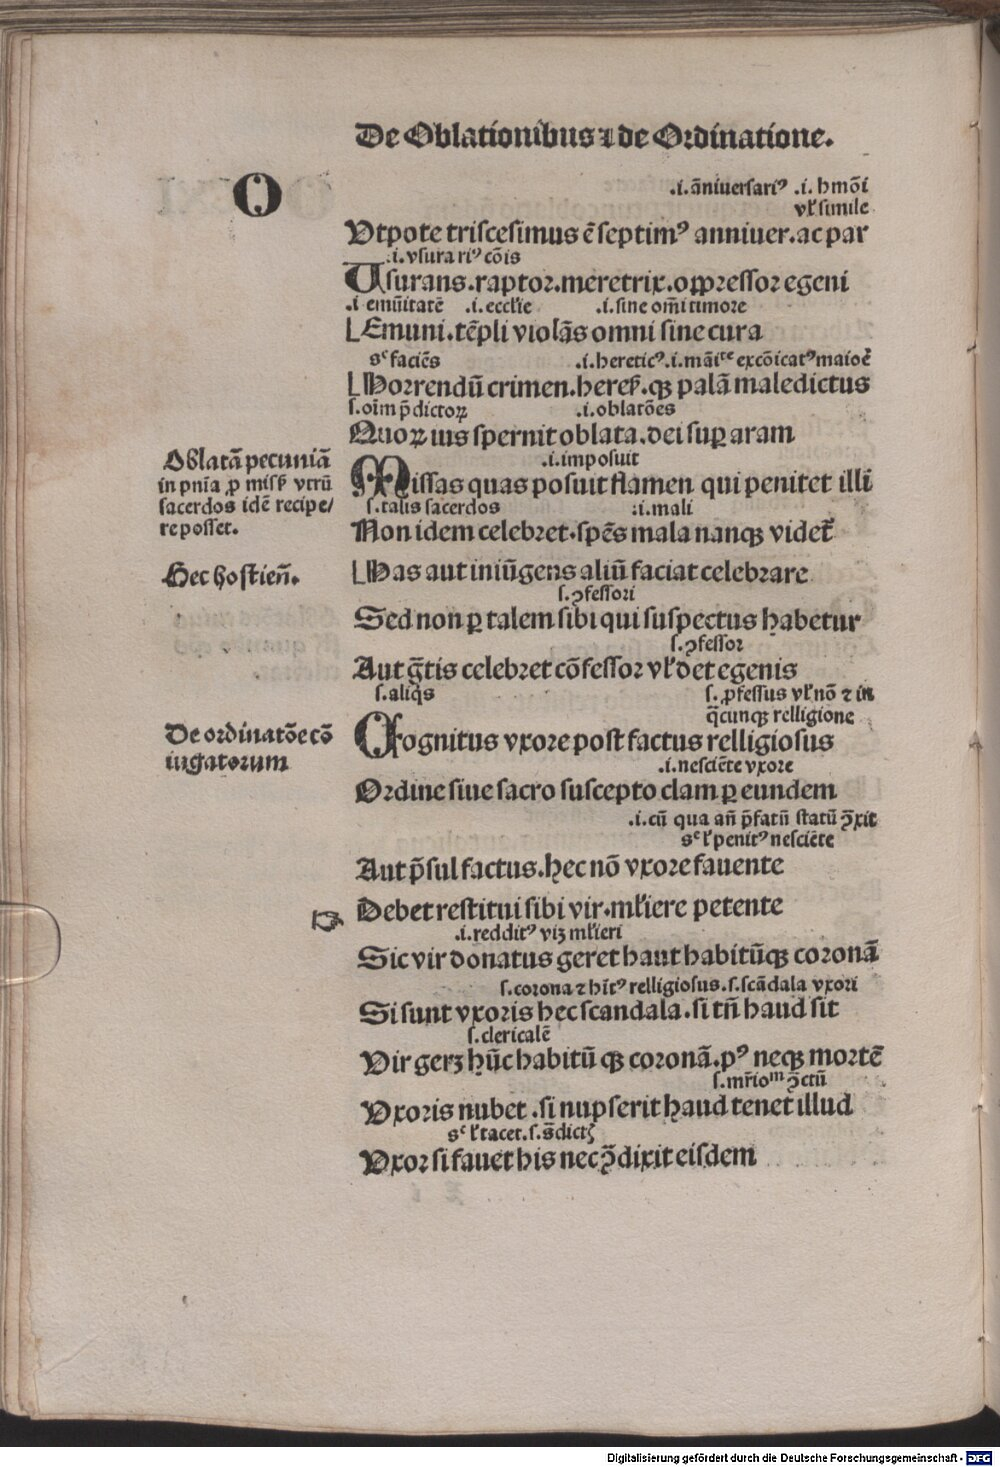 De Oblationibus ⁊ de Ordinatione.
O
.i. āniuersariꝰ .i. hmōi
vľ simile
Vtpote triscesimus ē septimꝰ anniuer. ac par
.i. vsurariꝰ cōis
Usurans. raptor. meretrix. oppressor egeni
.i emūitatē .i. eccľie .i. sine om̄i timore
Emuni. tēpli violās omni sine cura
sᶜ faciēs .i. hereticꝰ .i. māiᵗᵉ excōicatꝰ
Horrendū crimen. heres̄. qꝫ palā maledictus
s. oīm p̄dictoꝝ .i. oblatōes
Quoꝝ ius spernit oblata. dei suꝑ aram
.i. imposuit
Missas quas posuit flamen qui penitet illi
s. talis sacerdos .i. mali
Non idem celebret. spēs mala nanqꝫ videt᷑
Has aut iniūgens aliū faciat celebrare
s. ↄfessori
Sed non ꝑ talem sibi qui suspectus habetur
s. ↄfessor
Aut gr̄tis celebret cōfessor vľ det egenis
s. aliq̄s s. ꝓfessus vľ nō ⁊ in
q̄cunqꝫ relligione
Cognitus vxore post factus relligiosus
.i. nesciēte vxore
Ordine siue sacro suscepto clam ꝑ eundem
.i. cū qua an̄ p̄fatū statū ↄ̄xit
sᶜ ľ penitꝰ nesciēte
Aut p̄sul factus. hec nō vxore fauente
☞ Debet restitui sibi vir. mľiere petente
.i. redditꝰ viꝫ mľieri
Sic vir donatus geret haut habitūqꝫ coronā
s. corona ⁊ hītꝰ relligiosus. s. scādala vxori
Si sunt vxoris hec scandala. si tn̄ haud sit
s. clericalē
Vir gerꝫ hūc habitū qꝫ coronā. pꝰ neqꝫ mortē
s. mr̄ioᵐ ↄ̄ctū
Vxoris nubet. si nupserit haud tenet illud
sᶜ ľ tacet. s. s̄dictꝭ
Vxor si fauet his nec ↄ̄dixit eisdem
Oblatā pecuniā
in pn̄ia ꝓ miss̄ vtrū
sacerdos idē recipe/
re posset.
Hec hostien̄.
De ordinatōe cō
iugatorum
Digitalisierung gefördert durch die Deutsche Forschungsgemeinschaft - DFG